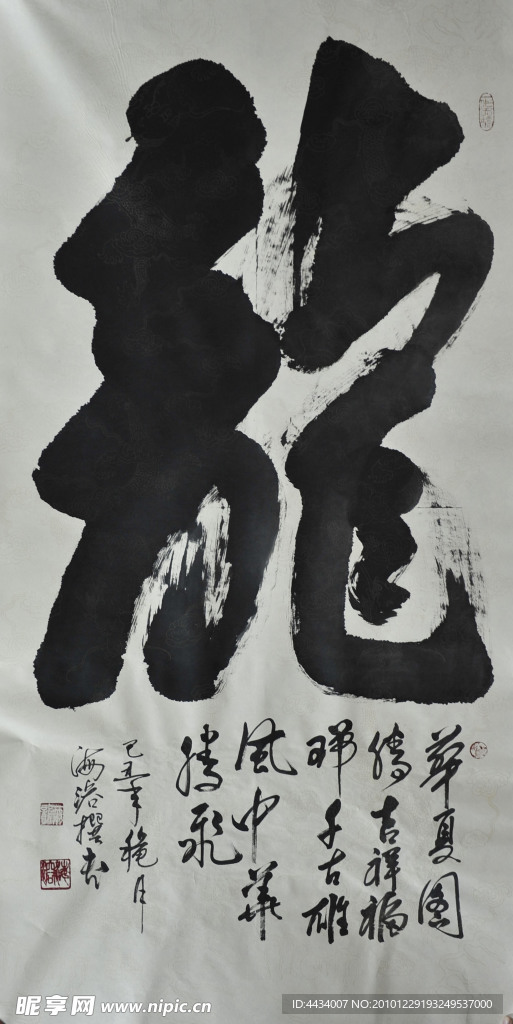 龍
華夏圖
騰吉祥福
瑞千古雄
風中華
騰飛
己丑年穐月
海 撰书
昵享网 www.nipic.cn
ID:4434007 NO:20101229193249537000